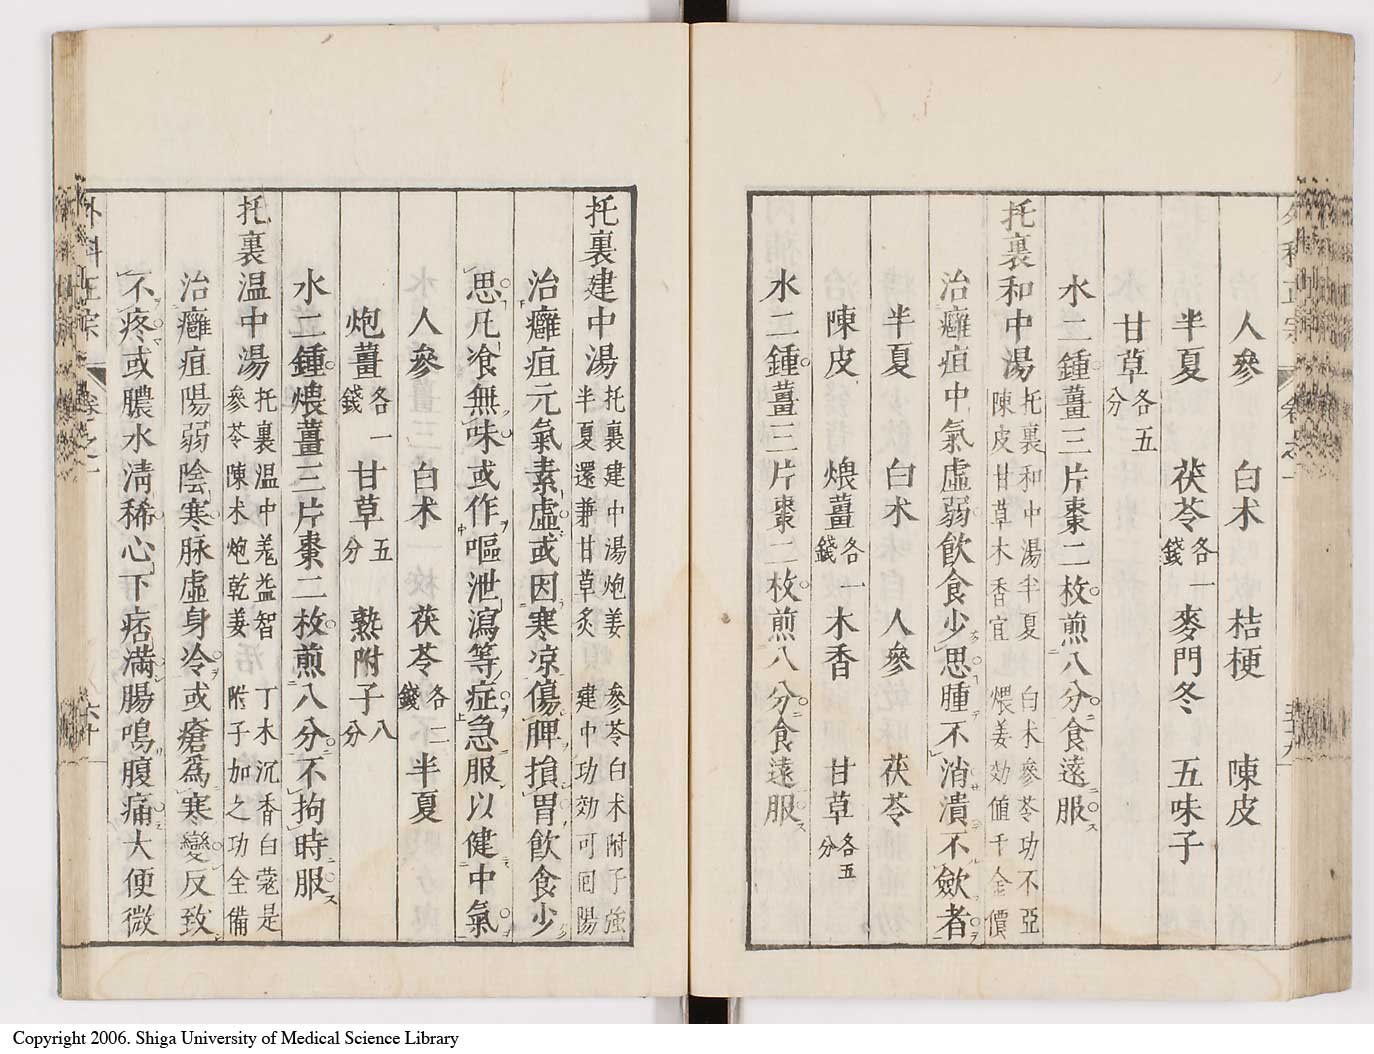 人參　白朮　桔梗　陳皮
半夏　茯苓各一錢　麥門冬　五味子
甘草各五分
水二鍾薑三片棗二枚煎八分食遠服
托裏和中湯托裏和中湯半夏　白朮參苓功不亞
陳皮甘草木香宜　煨姜効值千金價
治癰疽中氣虛弱飲食少思腫不消潰不斂者
半夏　白朮　人參　茯苓
陳皮　煨薑各一錢　木香　甘草各五分
水二鍾薑三片棗二枚煎八分食遠服
托裏建中湯托裏建中湯炮姜　參苓白朮附子強
半夏還兼甘草炙　建中功効可回陽
治癰疽元氣素虛或因寒凉傷脾損胃飲食少
思凡飡無味或作嘔泄瀉等症急服以健中氣
人參　白朮　茯苓各二錢　半夏
炮薑各一錢　甘草五分　熟附子八分
水二鍾煨薑三片棗二枚煎八分不拘時服
托裏温中湯托裏温中羌益智　丁木沉香白蔻是
參苓陳朮炮乾姜　附子加之功全備
治癰疽陽弱陰寒脉虛身冷或瘡爲寒變反致
不疼或膿水清稀心下痞滿腸鳴腹痛大便微
外科正宗　卷之一　六十
Copyright 2006. Shiga University of Medical Science Library